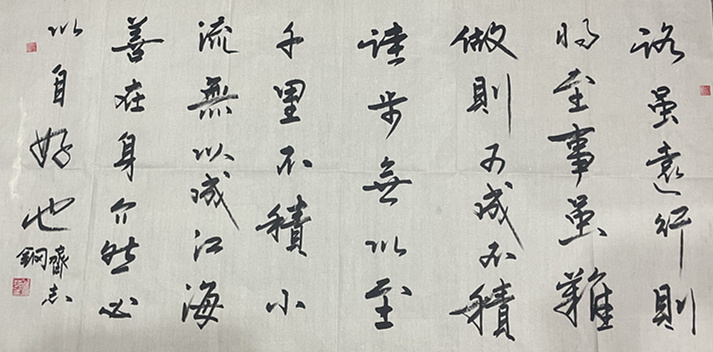 路虽遠行則
将至事虽難
做則可成不積
跬步無以至
千里不積小
流無以成江海
善在身介然必
以自好也
齊志
鋼